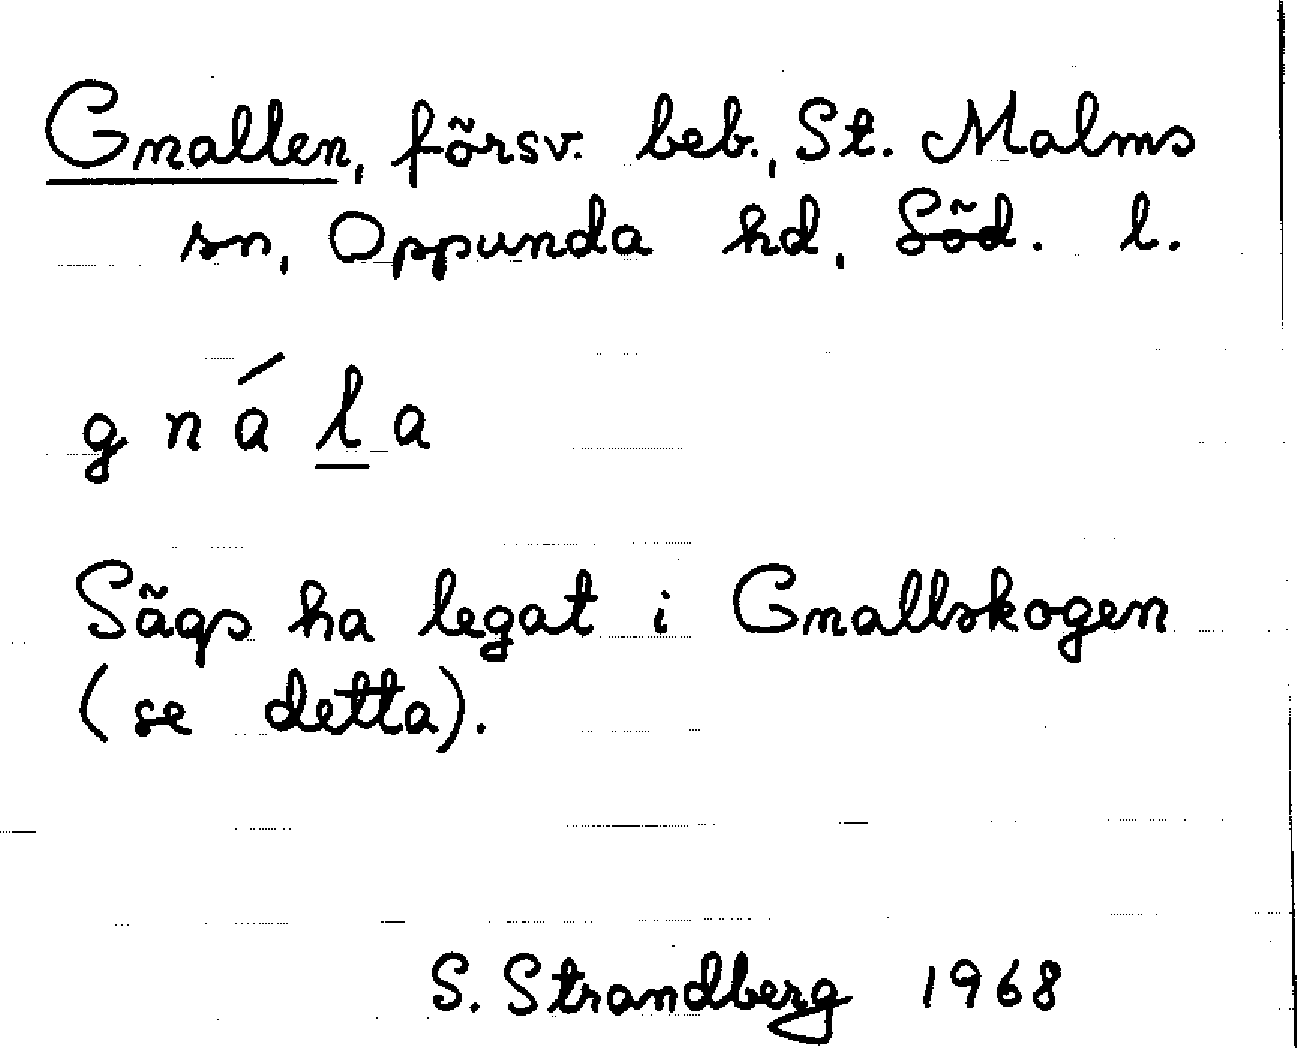 Gnallen, försv. beb., St. Malms
sn, Oppunda hd, Söd. l.
g n á l a
Sägs ha legat i Gnallskogen
(se detta).
S. Strandberg 1968